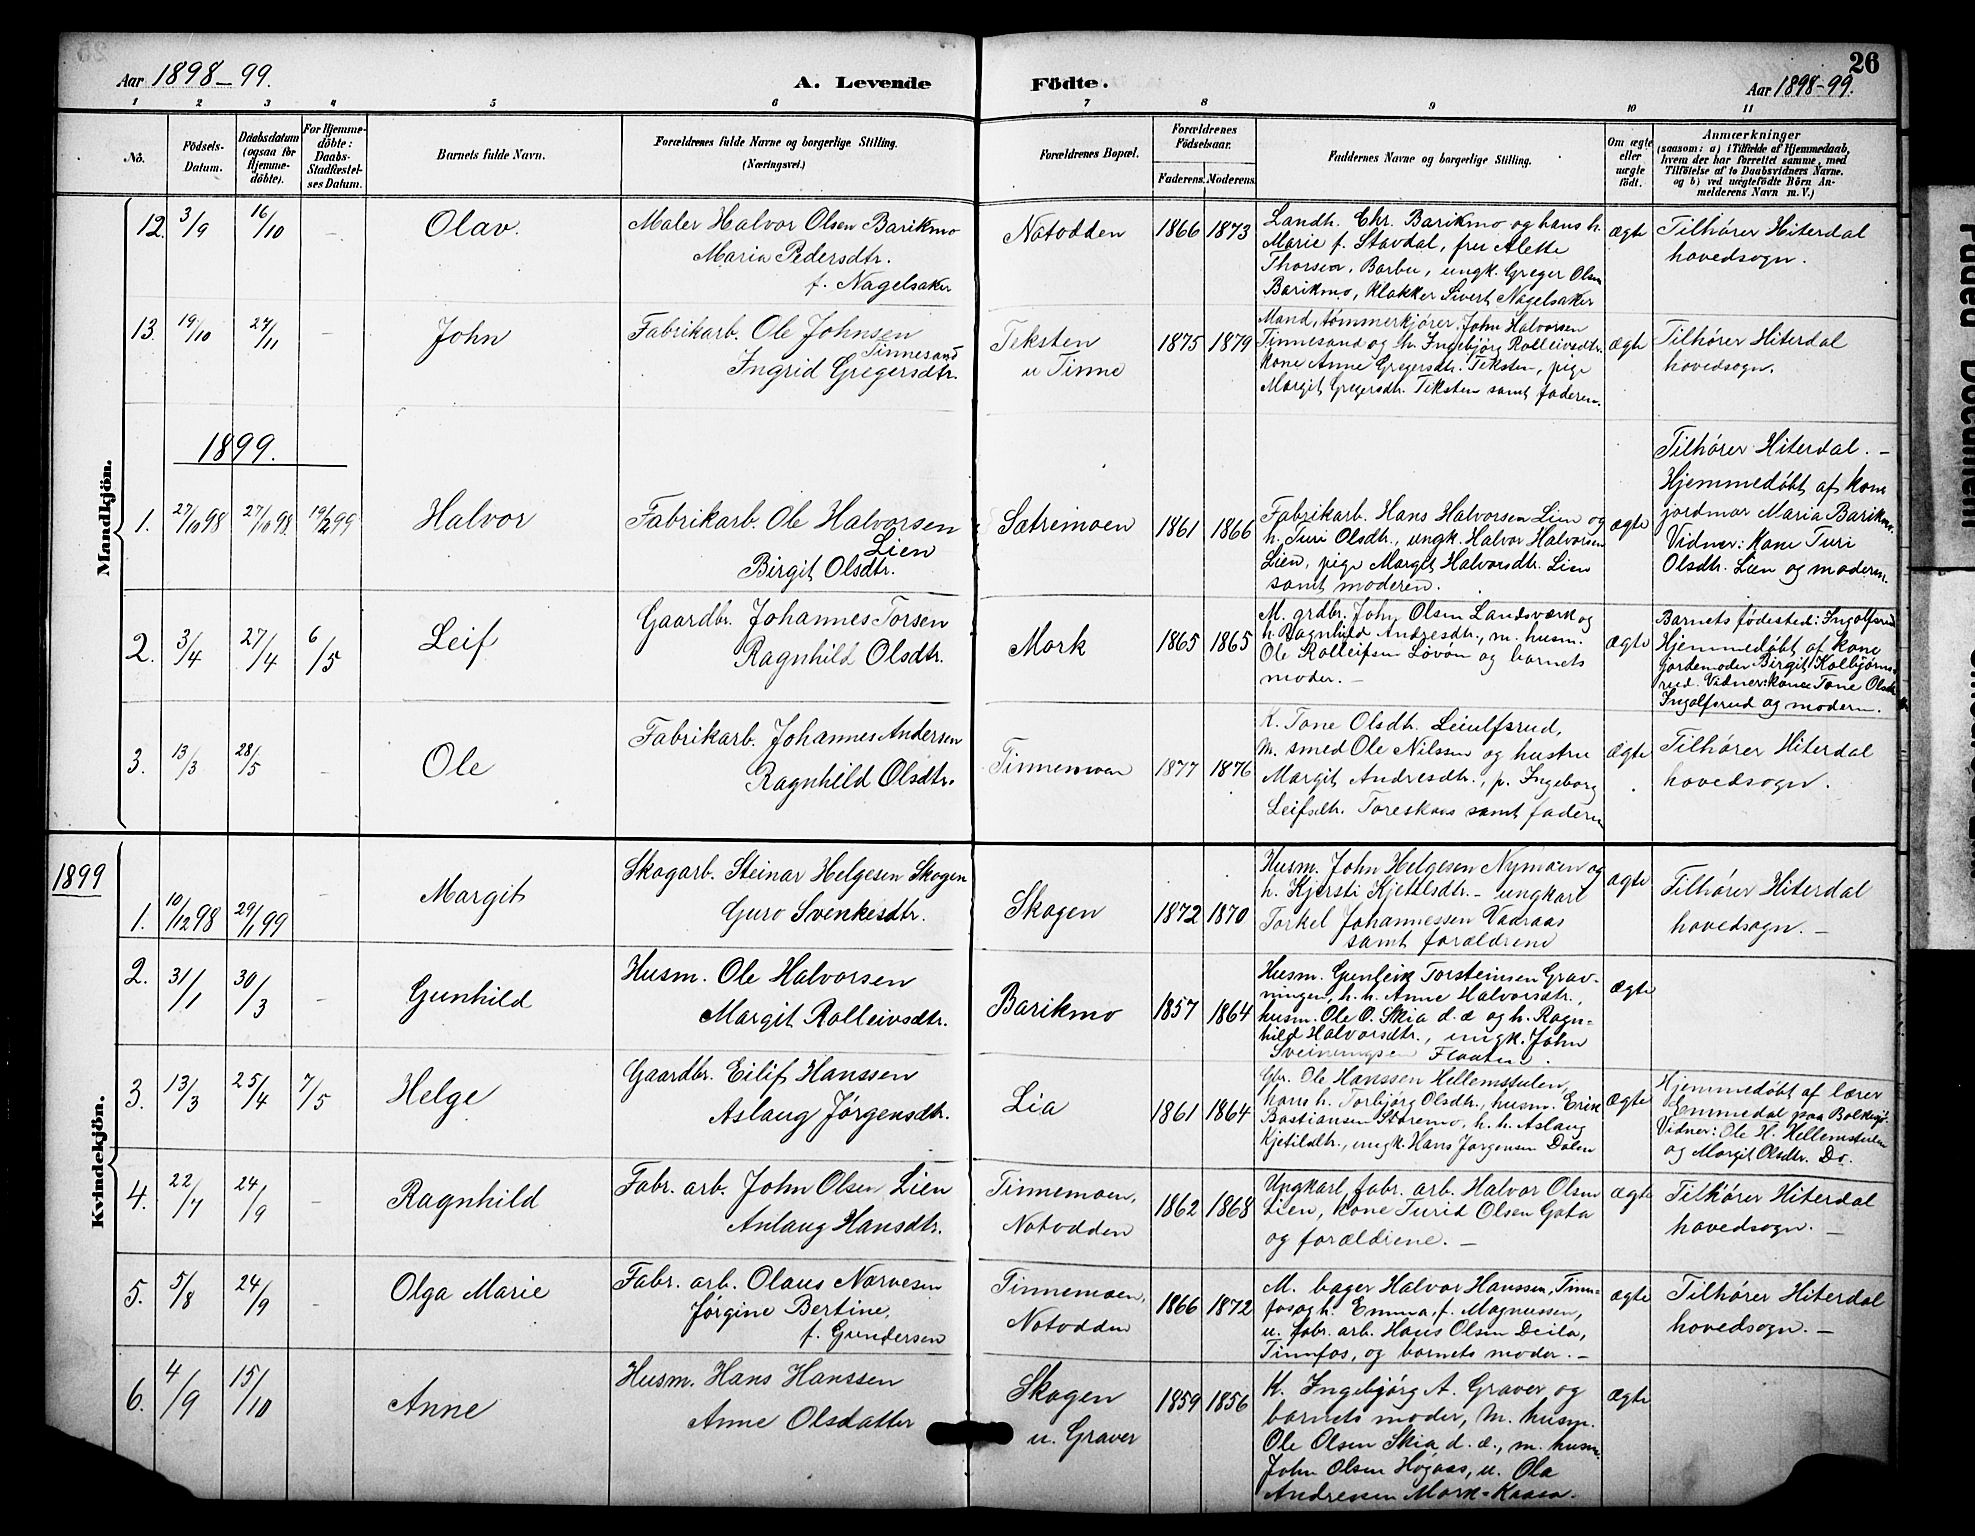 Aar 1898-99. A. Levende Födte. Aar 1898-99. 26
1 2 3 4 5 6 7 8 9 10 11
No.
Födsels-
Datum.
Daabsdatum
(ogsaa for
Hjemme-
döbte).
For Hjemme-
döbte:
Daabs-
Stadfæstel-
ses Datum.
Barnets fulde Navn.
Forældrenes fulde Navne og borgerlige Stilling.
(Næringsvei.)
Forældrenes Bopæl.
Forældrenes
Födselsaar.
Faderens. Moderens.
Faddernes Navne og borgerlige Stilling.
Om ægte
eller
uægte
födt.
Anmærkninger
(saasom: a) i Tilfælde af Hjemmedaab,
hvem der har forrettet samme, med
Tilföielse af to Daabsvidners Navne.
og b) ved uægtefödte Börn An-
melderens Navn m. V.)
Mandkjön.
12. 3/9 16/10 - Olav.
Maler Halvor Olsen Barikmo
Maria Pedersdtr.
f. Nagelsaker
Notodden 1866 1873
Landh. Chr. Barikmo og hans h.
Marie f. Stavdal, fru Alette
Thorsen, Barbu, ungk. Greger Olsen
Barikmo, Klokker Sivert Nagelsaker
ægte
Tilhører Hiterdal
hovedsogn.
13. 19/10 27/11 - John
Fabrikarb. Ole Johnsen
Tinnesand
Ingrid Gregersdtr.
Teksten
u Tinne
1875 1879
Mand, tømmerkjører John Halvorsen
Tinnesand og h. Ingebjørg Rolleivsdtr.
kone Anne Gregersdtr. Teksten, pige
Margit Gregersdtr. Teksten samt faderen.
ægte
Tilhører Hiterdal
hovedsogn.
1899.
1. 27/10 98 27/10 98 19/2 99 Halvor
Fabrikarb. Ole Halvorsen
Lien
Birgit Olsdtr.
Sætremoen 1861 1866
Fabrikarb. Hans Halvorsen Lien og
h. Turi Olsdtr., ungk. Halvor Halvorsen
Lien, pige Margit Halvorsdtr. Lien
samt moderen.
ægte
Tilhører Hiterdal. -
Hjemmedøbt af kone
jordmor Maria Barikmo.
Vidner: kone Turi
Olsdtr. Lien og moderen.
2. 3/4 27/4 6/5 Leif
Gaardbr. Johannes Torsen
Ragnhild Olsdtr.
Mork 1865 1865
M. grdbr. John Olsen Landsværk og
h. Ragnhild Andresdtr., m. husm.
Ole Rolleifsen Løvån og barnets
moder. -
ægte
Barnets fødested: Ingolfsrud
Hjemmedøbt af kone
jordemoder Birgit Kolbjørns-
rud. Vidner: kone Tone Olsdtr
Ingolfsrud og modern.
3. 13/3 28/5 - Ole
Fabrikarb. Johannes Andersen
Ragnhild Olsdtr.
Tinnemoen 1877 1876
K. Tone Olsdtr. Leiulfsrud,
m. smed Ole Nilssen og hustru
Margit Andresdtr., p. Ingeborg
Leifsdtr. Toreskaas samt faderen
ægte
Tilhører Hiterdal
hovedsogn.
1899
Kvindekjön.
1. 10/12 98 29/1 99 - Margit
Skogarb. Steinar Helgesen Skogen
Guro Svenkesdtr.
Skogen 1872 1870
Husm. John Helgesen Nymoen og
h. Kjersti Kjetelsdtr. - ungkarl
Torkel Johannessen Vaaraas
samt forældrene
ægte
Tilhører Hiterdal
hovedsogn. -
2. 31/1 30/3 - Gunhild
Husm. Ole Halvorsen
Margit Rolleivsdtr.
Barikmo 1857 1864
Husm. Gunleik Torsteinsen Grav-
ningen, h. h. Anne Halvorsdtr.,
husm. Ole O. Skia d. æ og h. Ragn-
hild Halvorsdtr., ungk. John
Sveinungsen Flaaten.
ægte
3. 13/3 25/4 7/5 Helge
Gaardbr. Eilif Hanssen
Aslaug Jørgensdtr.
Lia 1861 1864
Gbr. Ole Hanssen Hellemstulen,
hans h. Torbjørg Olsdtr., husm. Erik
Bastiansen Støremo, h. h. Aslaug
Kjetilsdtr., ungk. Hans Jørgensen Dalen
ægte
Hjemmedøbt af lærer
Emmedal paa Bolkesjø.
Vidner: Ole H. Hellemstulen
og Margit Olsdtr. Do.
4. 22/7 24/9 - Ragnhild
Fabr. arb. John Olsen Lien
Anlaug Hansdtr.
Tinnemoen,
Notodden
1862 1868
Ungkarl fabr. arb. Halvor Olsen
Lien, kone Turid Olsen Gota
og forældrene. -
ægte
Tilhører Hiterdal
hovedsogn. -
5. 5/8 24/9 - Olga Marie
Fabr. arb. Olaus Narvesen
Jørgine Bertine,
f. Gundersen
Tinnemoen,
Notodden
1866 1872
M. bager Halvor Hanssen, Tinn-
fos og h. Emma, f. Magnussen,
u. fabr. arb. Hans Olsen Deila,
Tinnfos, og barnets moder. -
ægte
Tilhører Hiterdal
hovedsogn. -
6. 4/9 15/10 Anne
Husm. Hans Hanssen
Anne Olsdatter
Skogen
u. Graver
1859 1856
K. Ingebjørg A. Graver og
barnets moder, m. husm.
Ole Olsen Skia d. æ., m. husm.
John Olsen Høgaas, u. Ola
Andresen Mork-Kaasa.
ægte